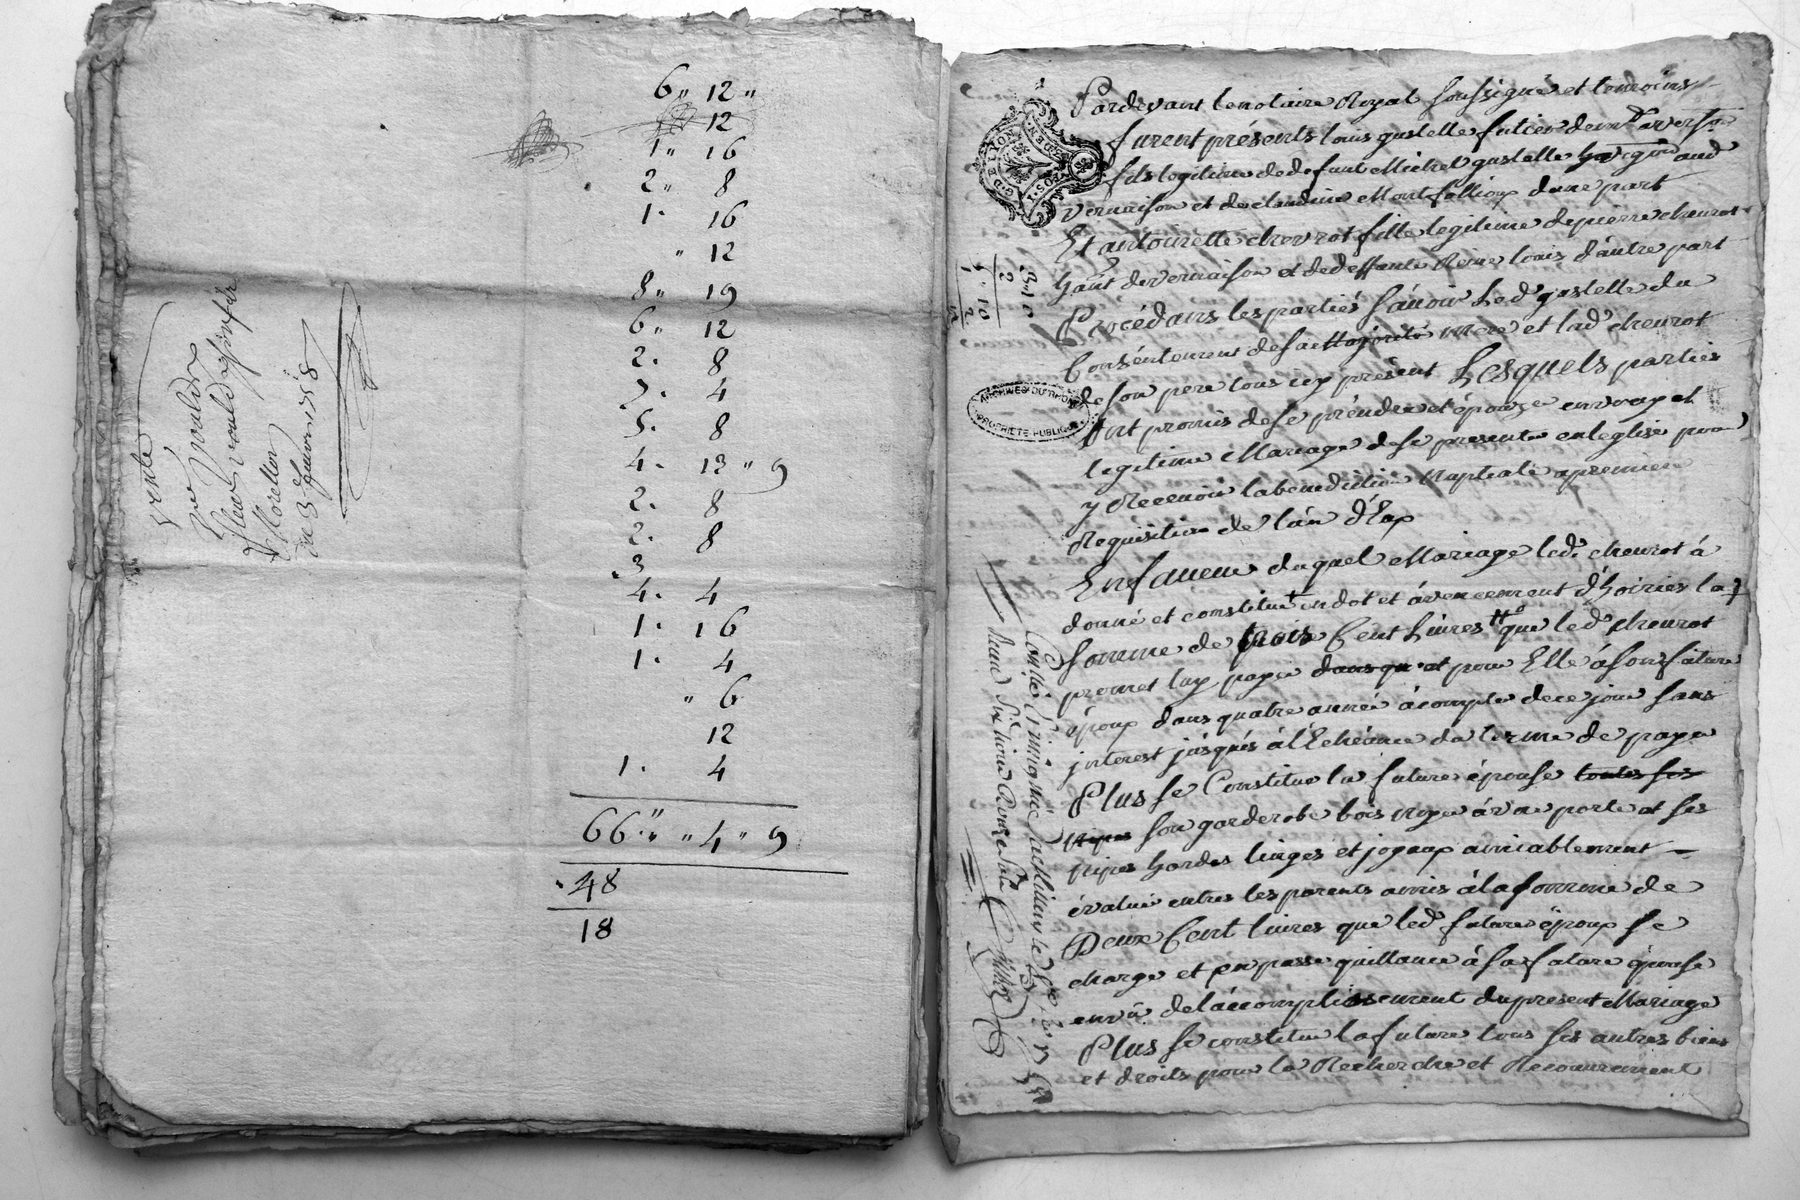 6 " 12 "
12
1 " 16
2 " 8
1 . 16
" 12
8 " 19
6 " 12
2 . 8
7 . 4
5 . 8
4 . 13 " 9
2 . 8
2 . 8
3
4 . 4
1 . 16
1 . 4
" 6
12
1 . 4
66 " " 4 " 9
48
18
vente
par
Sieur
Morellon
du 3e 1758
Pardevant le notaire Royal soussigné et temoins
furent présents louis gastelle
fils legitime de defunt Michel gastelle
vernaison et de claudine Montfallioux dune part
Et antoinette chevrot fille legitime de pierre chevrot
de vernaison et de deffante Reine louis dautre part
Procédans les parties sçavoir Led. gastelle du
Consentement de sa mere et lad. chevrot
de son pere tous icy présent Lesquels parties
Ont promis de se prendre et épouser en vray et
legitime Mariage de se presenter en leglise pour
y Recevoir la benediction Nuptiale a premiere
Requisition de lun d'Eux
En faveur duquel Mariage led. chevrot à
donné et constitué en dot et avencement d'hoiries la
somme de trois Cent Livres que led. chevrot
promet luy payer dans qu et pour Elle à son futur
époux dans quatre année à compter de ce jour sans
interest jusques à l'Echéance du terme de payer
Plus se Constitue la future épouse toutes ses
nipes son garderobe bois noyer à une porte et ses
nipes hardes linges et joyaux amiablement
évalué entres les parents amis à la somme de
Deux Cent livres que led. future époux se
charge et en passe quittance à sa future épouse
en vû de l'accomplissement du present Mariage
Plus se constitue la future tous ses autres biens
et droits pour la Recherche et Recouvrement
ARCHIVES DU RHÔNE
PROPRIÉTÉ PUBLIQUE
G. DE LYON